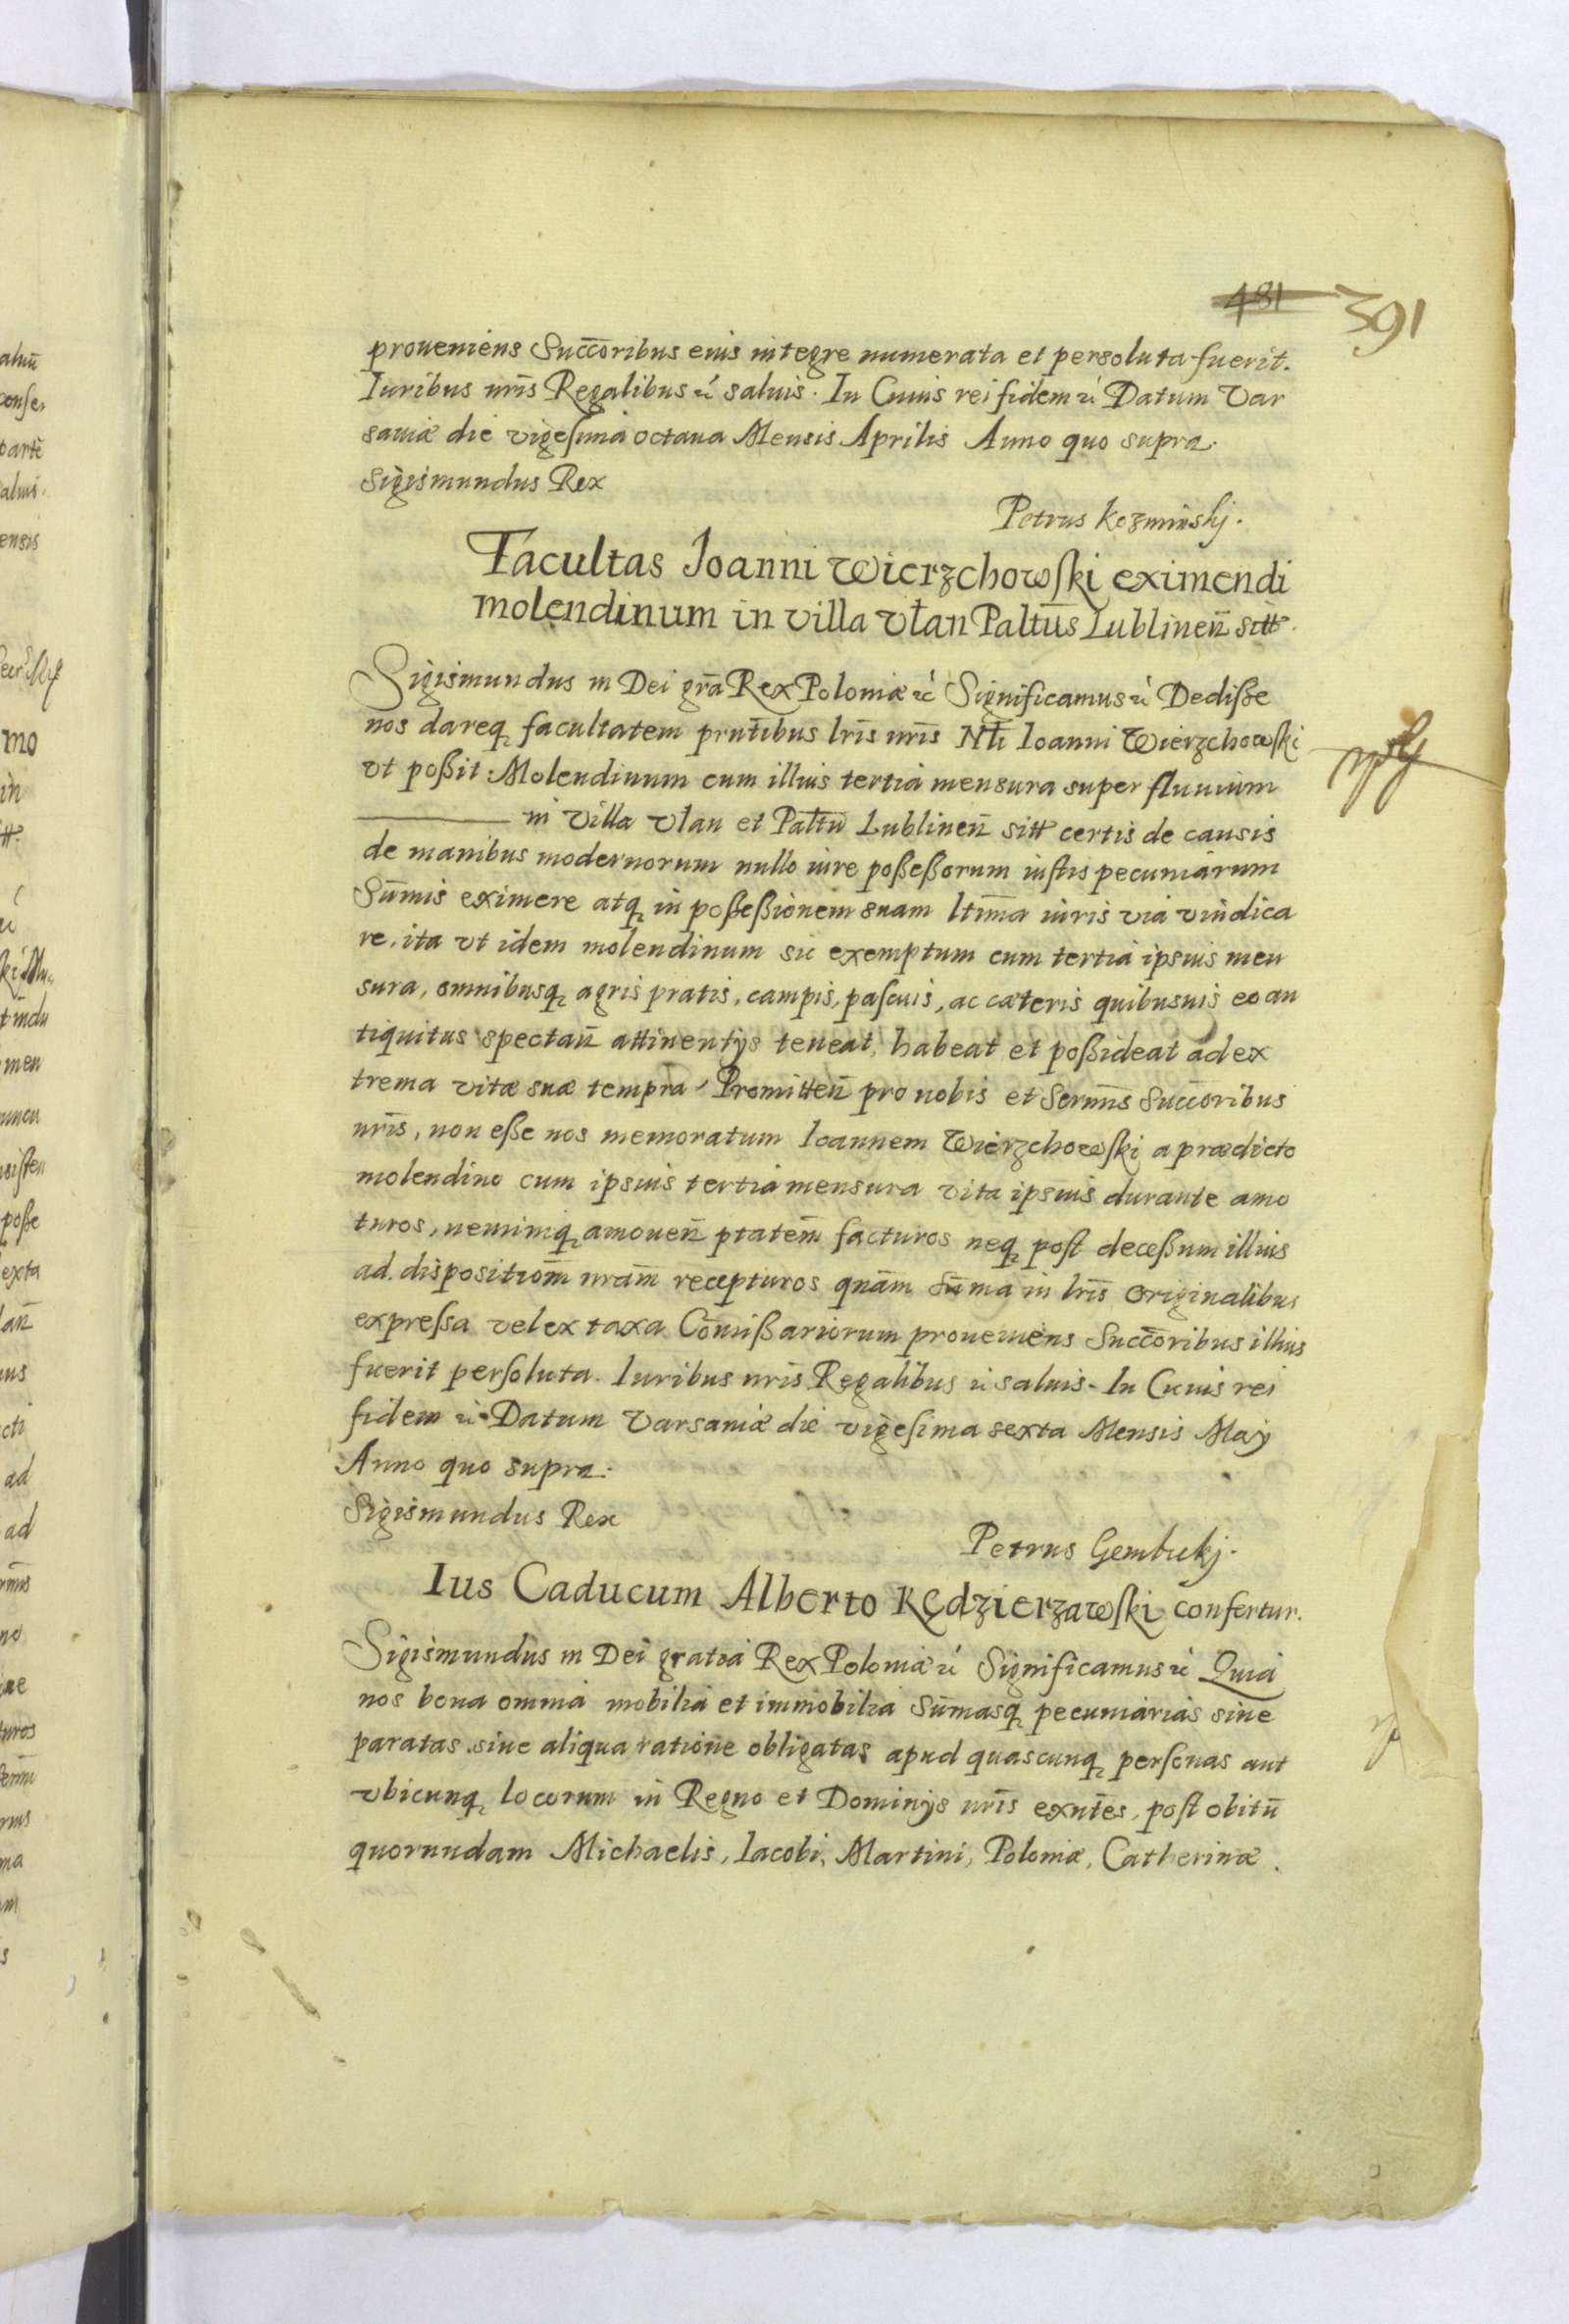 481 391
proueniens Succōribus eius integre numerata et persoluta fuerit.
Iuribus nr̄is Regalibus &c saluis. In Cuius rei fidem &c Datum Var
sauiæ die vigesima octaua Mensis Aprilis Anno quo supra.
Sigismundus Rex
Petrus Kozminskj.
Facultas Joanni Wierzchowski eximendi
molendinum in villa Vłan Paltūs Lublineñ sitt.
Sigismundus III Dei gr̄a Rex Poloniæ &c Significamus &c Dediße
nos dareq facultatem prntibus lr̄is nr̄is Nłi Ioanni Wierzchowski
vt poßit Molendinum cum illius tertia mensura super fluuium
in Villa Vlan et Paltū Lublineñ sitt certis de causis
de manibus modernorum nullo iure poßeßorum iustis pecuniarum
Sum̄is eximere atq in poßeßionem suam ltīma iuris via vindica
re, ita vt idem molendinum sic exemptum cum tertia ipsius men
sura, omnibusq agris pratis, campis, pascuis, ac cæteris quibusuis eo an
tiquitus spectañ attinentijs teneat, habeat et poßideat ad ex
trema vitæ suæ tempra. Promitteñ pro nobis et Sermis Succoribus
nr̄is, non eße nos memoratum Ioannem Wierzchowski a prædicto
molendino cum ipsius tertia mensura vita ipsius durante amo
turos, neminiq amoueñ ptatem̄ facturos neq post deceßum illius
ad dispositiom̄ nram̄ recepturos quam̄ sum̄a in lr̄is originalibus
expressa vel ex taxa Com̄ißariorum proueniens Succōribus illius
fuerit persoluta. Iuribus nr̄is Regalibus &c saluis. In Cuius rei
fidem &c Datum Varsauiæ die vigesima sexta Mensis Maÿ
Anno quo supra.
Sigismundus Rex
Petrus Gembickj.
Ius Caducum Alberto Kędzierzawski confertur.
Sigismundus III Dei gratia Rex Poloniæ &c Significamus &c Quia
nos bona omnia mobilia et immobilia Sum̄asq pecuniarias siue
paratas siue aliqua ratione obligatas apud quascunq personas aut
vbicunq locorum in Regno et Dominijs nr̄is exntes, post obitū
quorundam Michaelis, Iacobi, Martini, Poloniæ, Catherinæ.